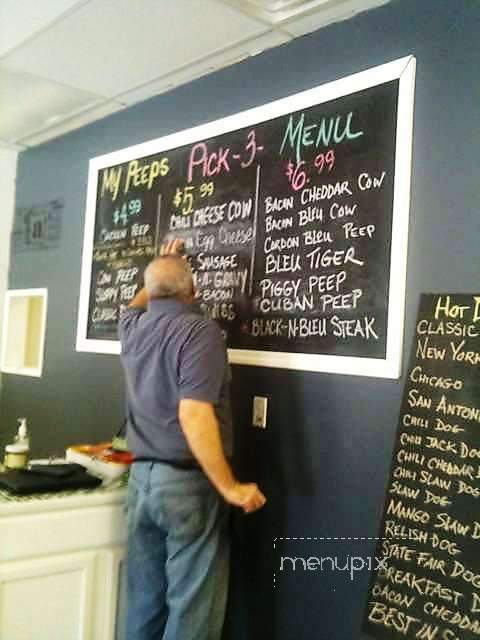 My Peeps
Pick-3-
Menu
$4.99
Chicken Peep
Cow Peep
Sloppy Peep
Classic
$5.99
Chili Cheese Cow
Egg Cheese
Sausage
-N-Gravy
Bacon
$6.99
Bacon Cheddar Cow
Bacon Bleu Cow
Cordon Bleu Peep
Bleu Tiger
Piggy Peep
Cuban Peep
Black-N-Bleu Steak
Hot D
Classic
New York
Chicago
San Antoni
Chili Dog
Chili Jack Do
Chili Cheddar D
Chili Slaw Dog
Slaw Dog
Mango Slaw D
Relish Dog
State Fair Dog
Breakfast D
Bacon Chedda
Best in
menupix